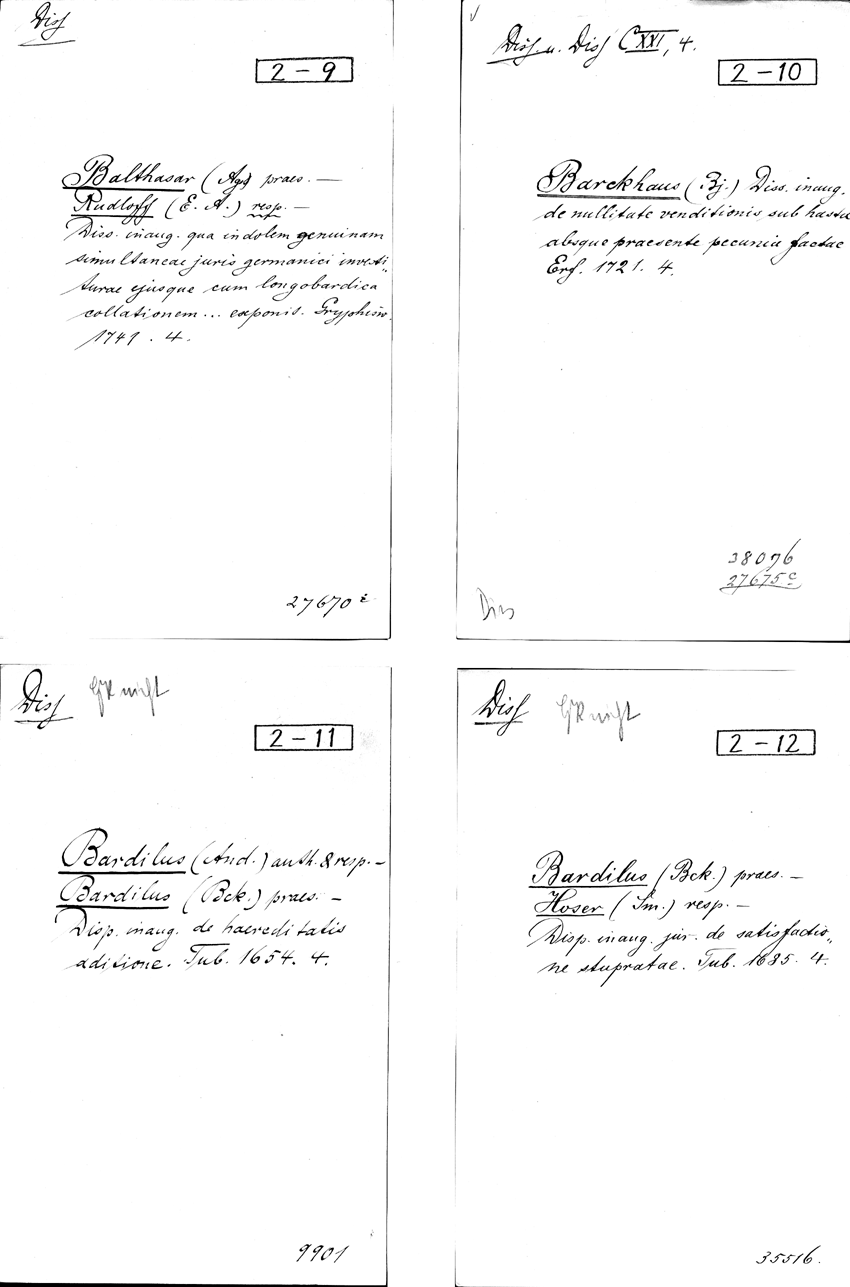 Diss
2 – 9
Balthasar (Ag.) praes. —
Rudloff (E. A.) resp. —
Diss. inaug. qua indolem genuinam
simultaneae juris germanici investi„
turae ejusque cum longobardica
collationem... exponis. Gryphisw.
1741. 4.
27670
Diss. u. Diss CXXI, 4.
2 – 10
Barckhaus (Bj.) Diss. inaug.
de nullitate venditionis sub hasta
absque praesente pecunia factae
Erf. 1721. 4.
38076
27675c
Diss
Diss
2 – 11
Bardilus (And.) auth. & resp. –
Bardilus (Bck.) praes. –
Disp. inaug. de haereditatis
aditione. Tub. 1654. 4.
9901
Diss
2 – 12
Bardilus (Bck.) praes. –
Hoser (Sm.) resp. –
Disp. inaug. jur. de satisfactio„
ne stupratae. Tub. 1685. 4.
35516.